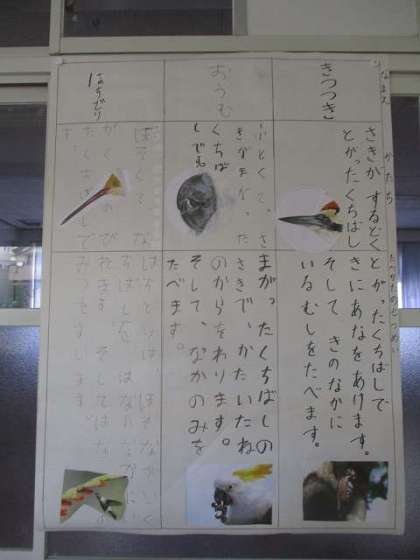 なまえ
かたち
きつつき
さきが するどく
とがったくちばし
とがったくちばしで
きにあなをあけます。
そして、きのなかに
いるむしをたべます。
おうむ
ふとくて、さ
きがまがった
くちば
しです
まがったくちばしの
さきで、かたいたね
のからをわります。
そして、なかのみを
たべます。
はちどり
ほそくて、な
がく、のび
たくちばしで
す。
はちどりは、ほそながいく
ちばしを、はなのなかにい
れます。そしてはなの
みつをすいます。